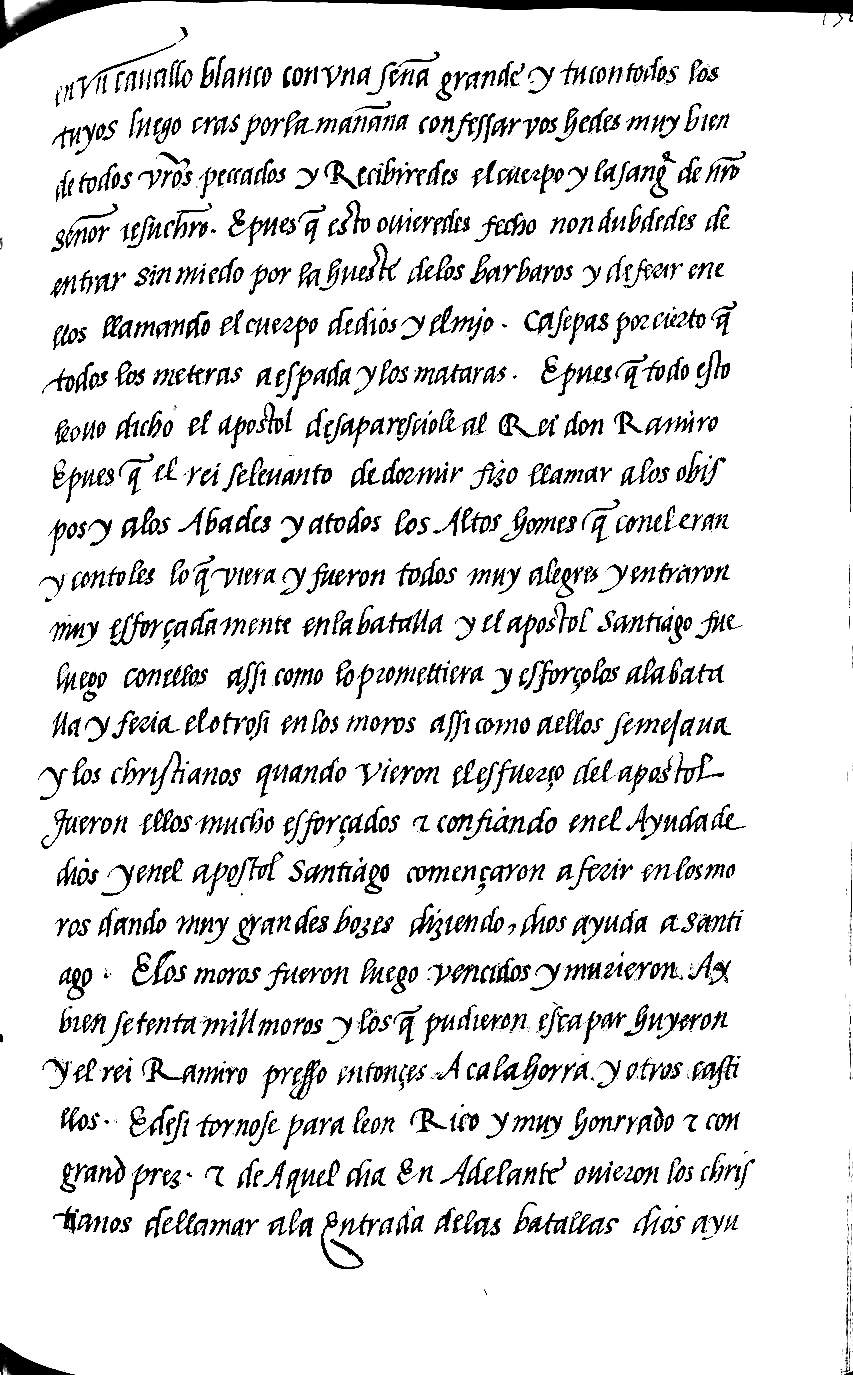 en vn cauallo blanco con vna seña grande y tu con todos los
tuyos luego cras por la mañana confessar vos hedes muy bien
de todos vr̃os peccados y Recibiredes el cuerpo y la sang̃ de nr̃o
señor iesuchr̃o. E pues q̃ esto ouieredes fecho non dubdedes de
entrar sin miedo por la hueste de los barbaros y de ferir en e
llos llamando el cuerpo de dios y el mjo. Ca sepas por cierto q̃
todos los meteras a espada y los mataras. E pues q̃ todo esto
houo dicho el apostol desaparesciole al Rei don Ramiro
E pues q̃ el rei se leuanto de dormir fizo llamar a los obis
pos y a los Abades y a todos los Altos homes q̃ con el eran
y contoles lo q̃ viera y fueron todos muy alegres y entraron
muy esforçadamente en la batalla y el apostol Santiago fue
luego con ellos assi como lo promettiera y esforçolos a la bata
lla y feria el otrosi en los moros assi como a ellos semejaua
y los christianos quando vieron el esfuerço del apostol
fueron ellos mucho esforçados ⁊ confiando en el Ayuda de
dios y en el apostol Santiago començaron a ferir en los mo
ros dando muy grandes bozes diziendo, dios ayuda a santi
ago. E los moros fueron luego vencidos y murieron. Ay
bien setenta mill moros y los q̃ pudieron escapar huyeron
y el rei Ramiro presso entonçes A calahorra. y otros casti
llos. E desi tornose para leon Rico y muy honrrado ⁊ con
grand prez. ⁊ de Aquel dia En Adelante ouieron los chris
tianos de llamar a la Entrada de las batallas dios ayu